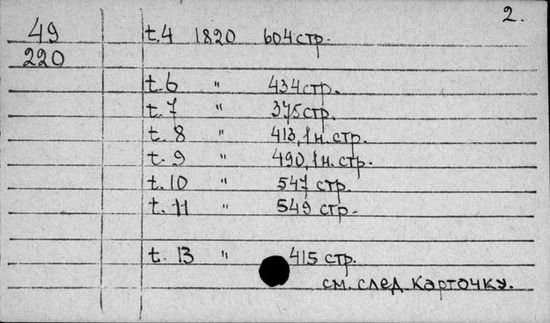 2.
49 t.4 1820 604 стр.
220
t.6 " 434 стр.
t.7 " 375 стр.
t. 8 " 413, 1 н. стр.
t. 9 " 490, 1 н. стр.
t. 10 " 547 стр.
t. 11 " 549 стр.
t. 13 " 415 стр.
см. след карточку.